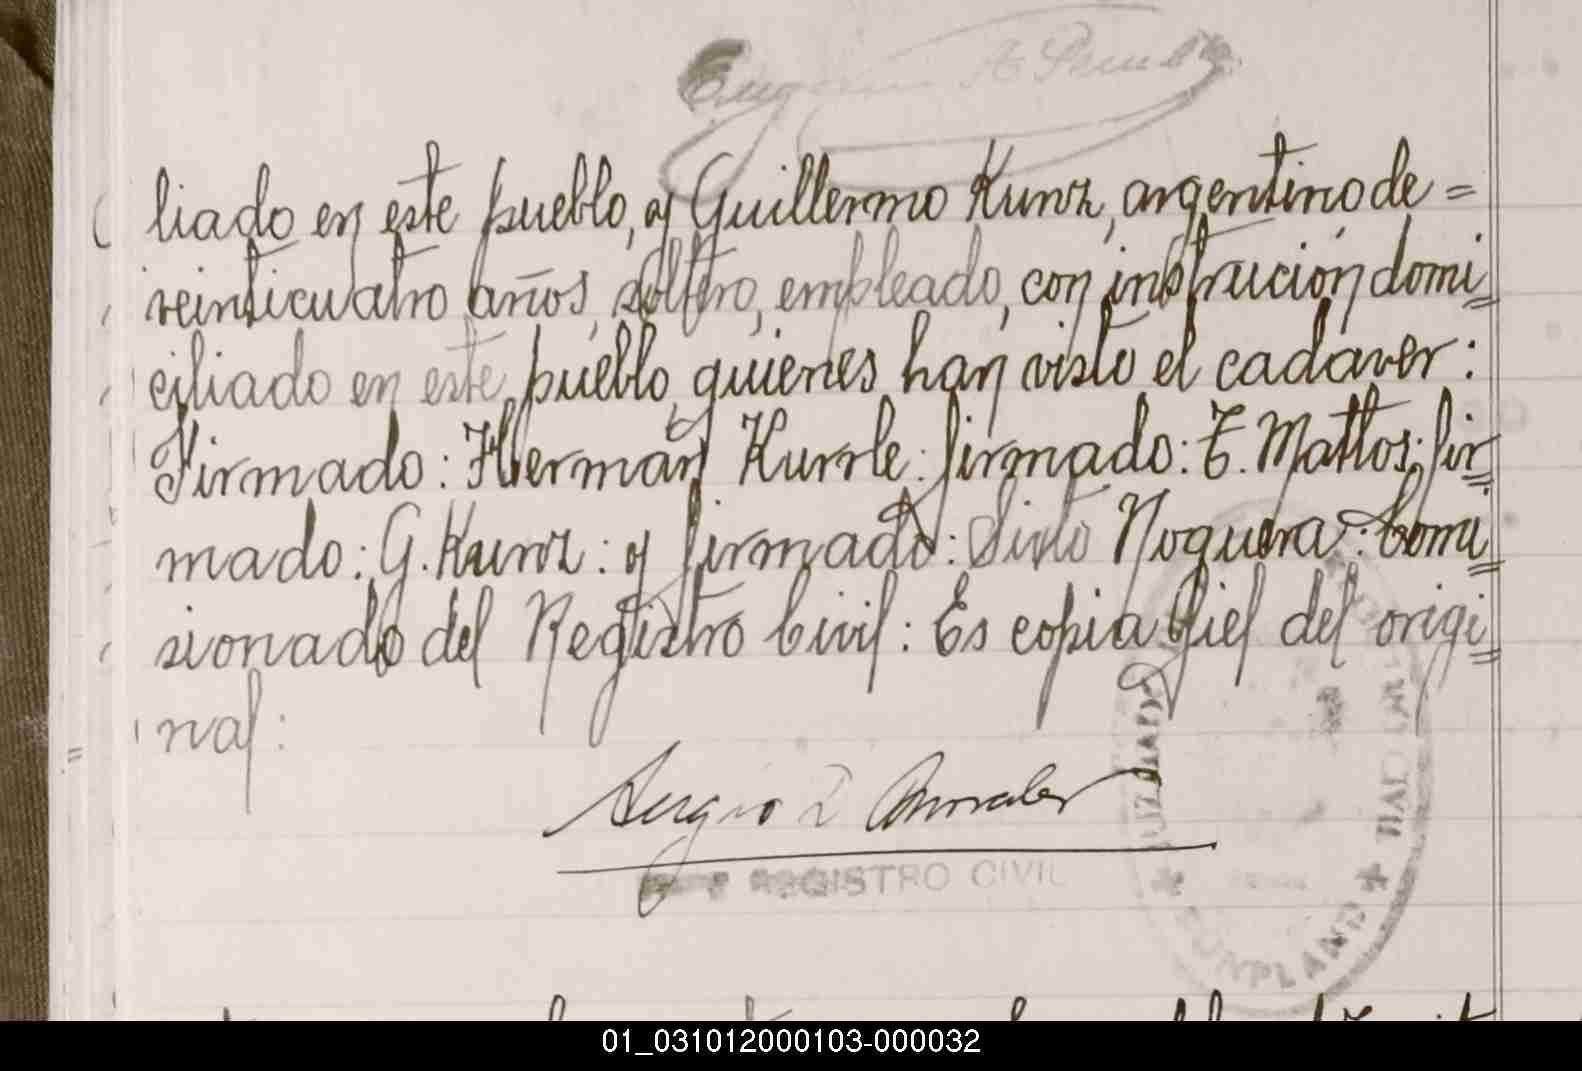 liado en este pueblo, y Guillermo Kunz, argentino de =
veinticuatro años, soltero, empleado, con instrución domi=
ciliado en este pueblo, quienes han visto el cadaver:
Firmado: Herman Kurrle: firmado: E. Mattos: fir=
mado: G. Kunz: y firmado: Sixto Noguera: Comi=
sionado del Registro Civil: Es copia fiel del origi=
nal:
Sergio
REGISTRO CIVIL
01_031012000103-000032